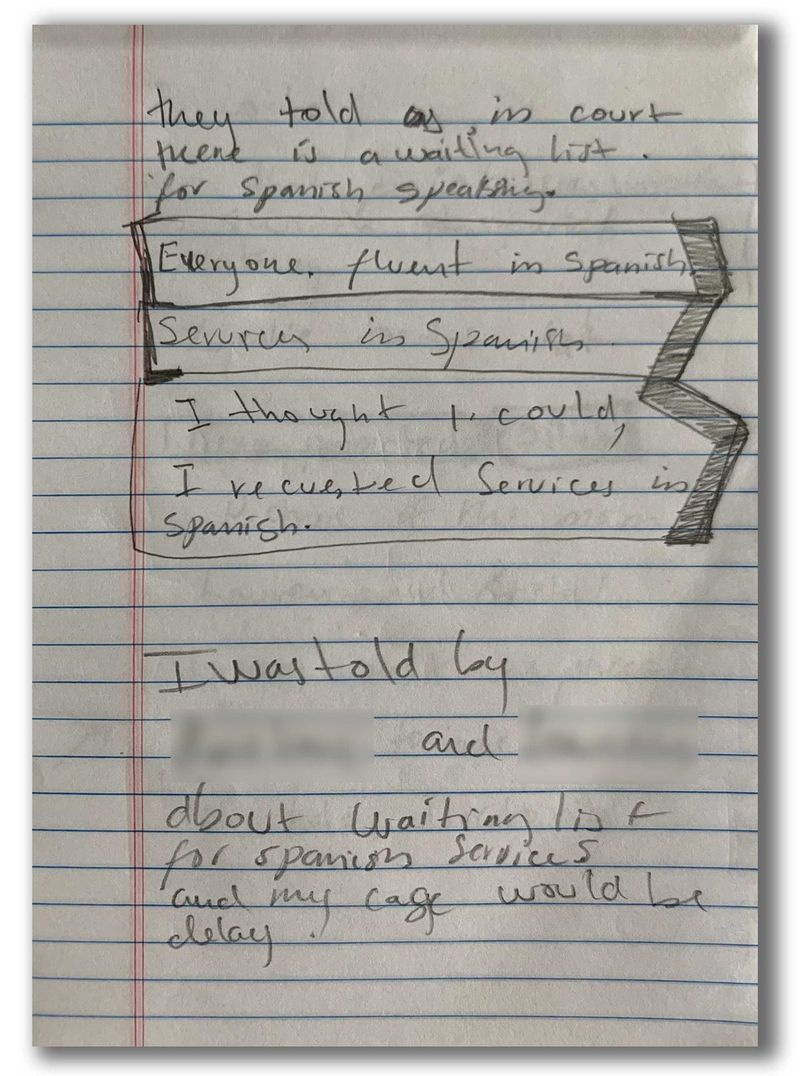 they told as in court
there is a waiting list.
for Spanish speaking.
Everyone. fluent in Spanish
Services in Spanish
I thought I. could,
I recuested Services in
Spanish.
I was told by
and
about waiting list
for spanish services
and my case would be
delay.